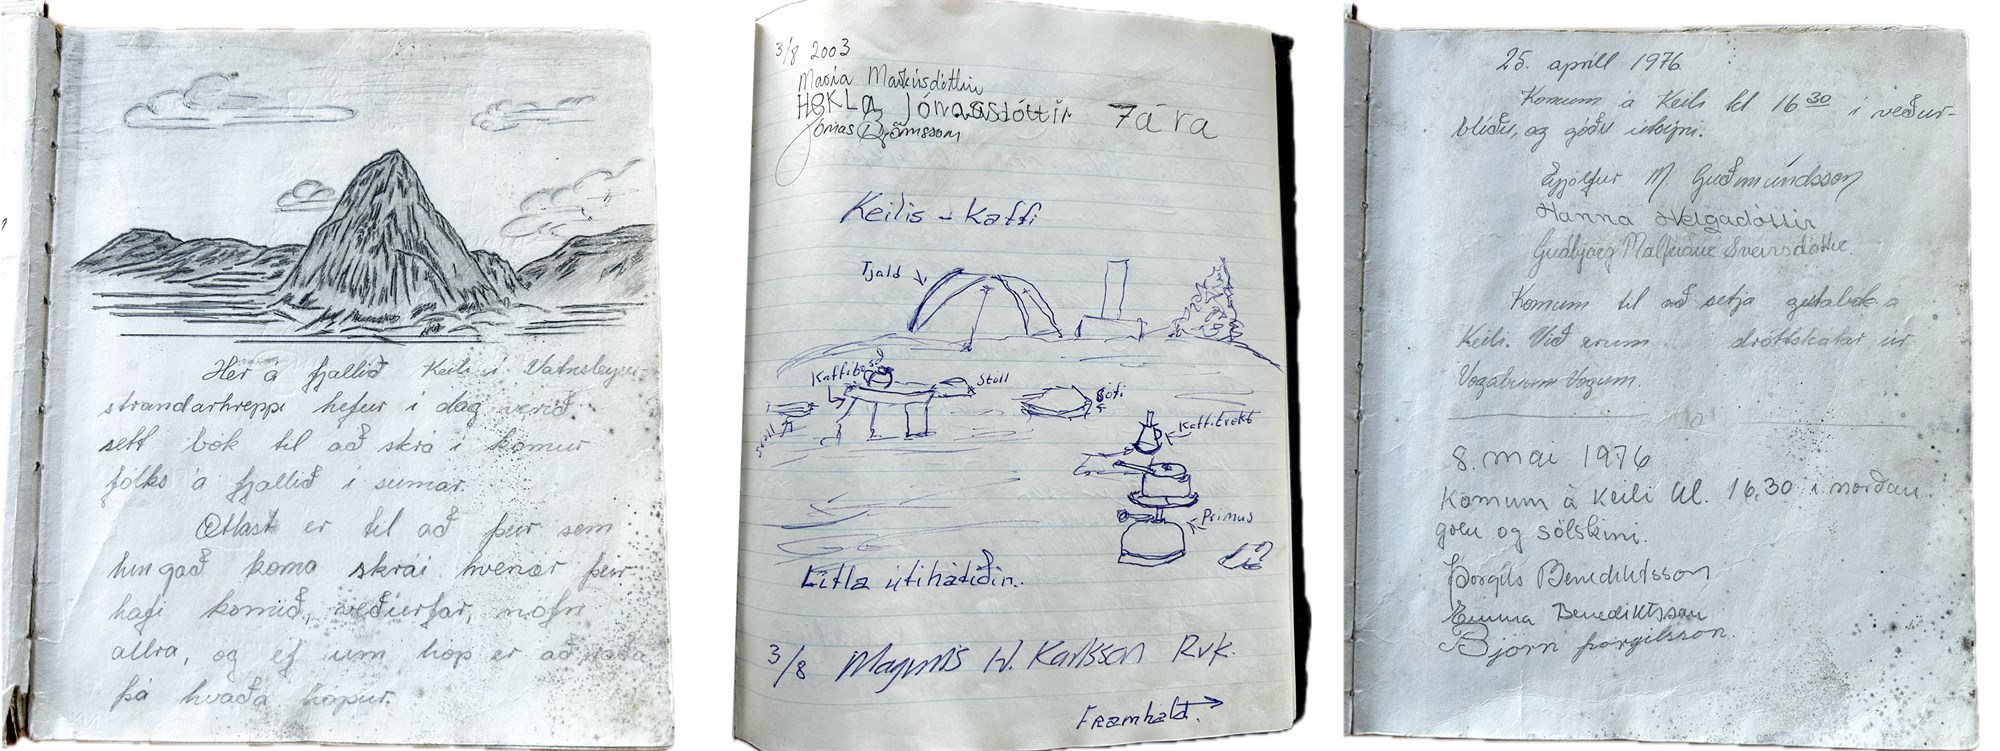 Hér á fjallið Keili í Vatnsleysu-
strandarhreppi hefur í dag verið
sett bók til að skrá í komur
fólks á fjallið í sumar.
Ætlast er til að þeir sem
hingað koma skrái hvenær þeir
hafi komið, veðurfar, nöfn
allra, og ef um hóp er að ræða
þá hvaða hópur.
3/8 2003
María Markúsdóttir
HEKLA Jónasdóttir 7 ára
Jónas Björnsson
Keilis - Kaffi
Tjald
Kaffiborð
Stóll
Stóll
Sófi
Kaffitrekt
Primus
Litla útihátíðin.
3/8 Magnús H. Karlsson Rvk.
Framhald.
25. apríll 1976
Komum á Keili kl 16 30 í veður-
blíðu, og góðu útsýni.
Eyjólfur M. Guðmúndsson
Hanna Helgadóttir
Guðbjörg Málfríður Sveinsdóttir.
Komum til að setja gestabók á
Keili. Við erum dróttskátar úr
Vogum.
8. maí 1976
Komum á Keili kl. 16,30 í norðan.
golu og sólskini.
Þorgils Benediktsson
Emma Benediktsson
Björn Þorgilsson.